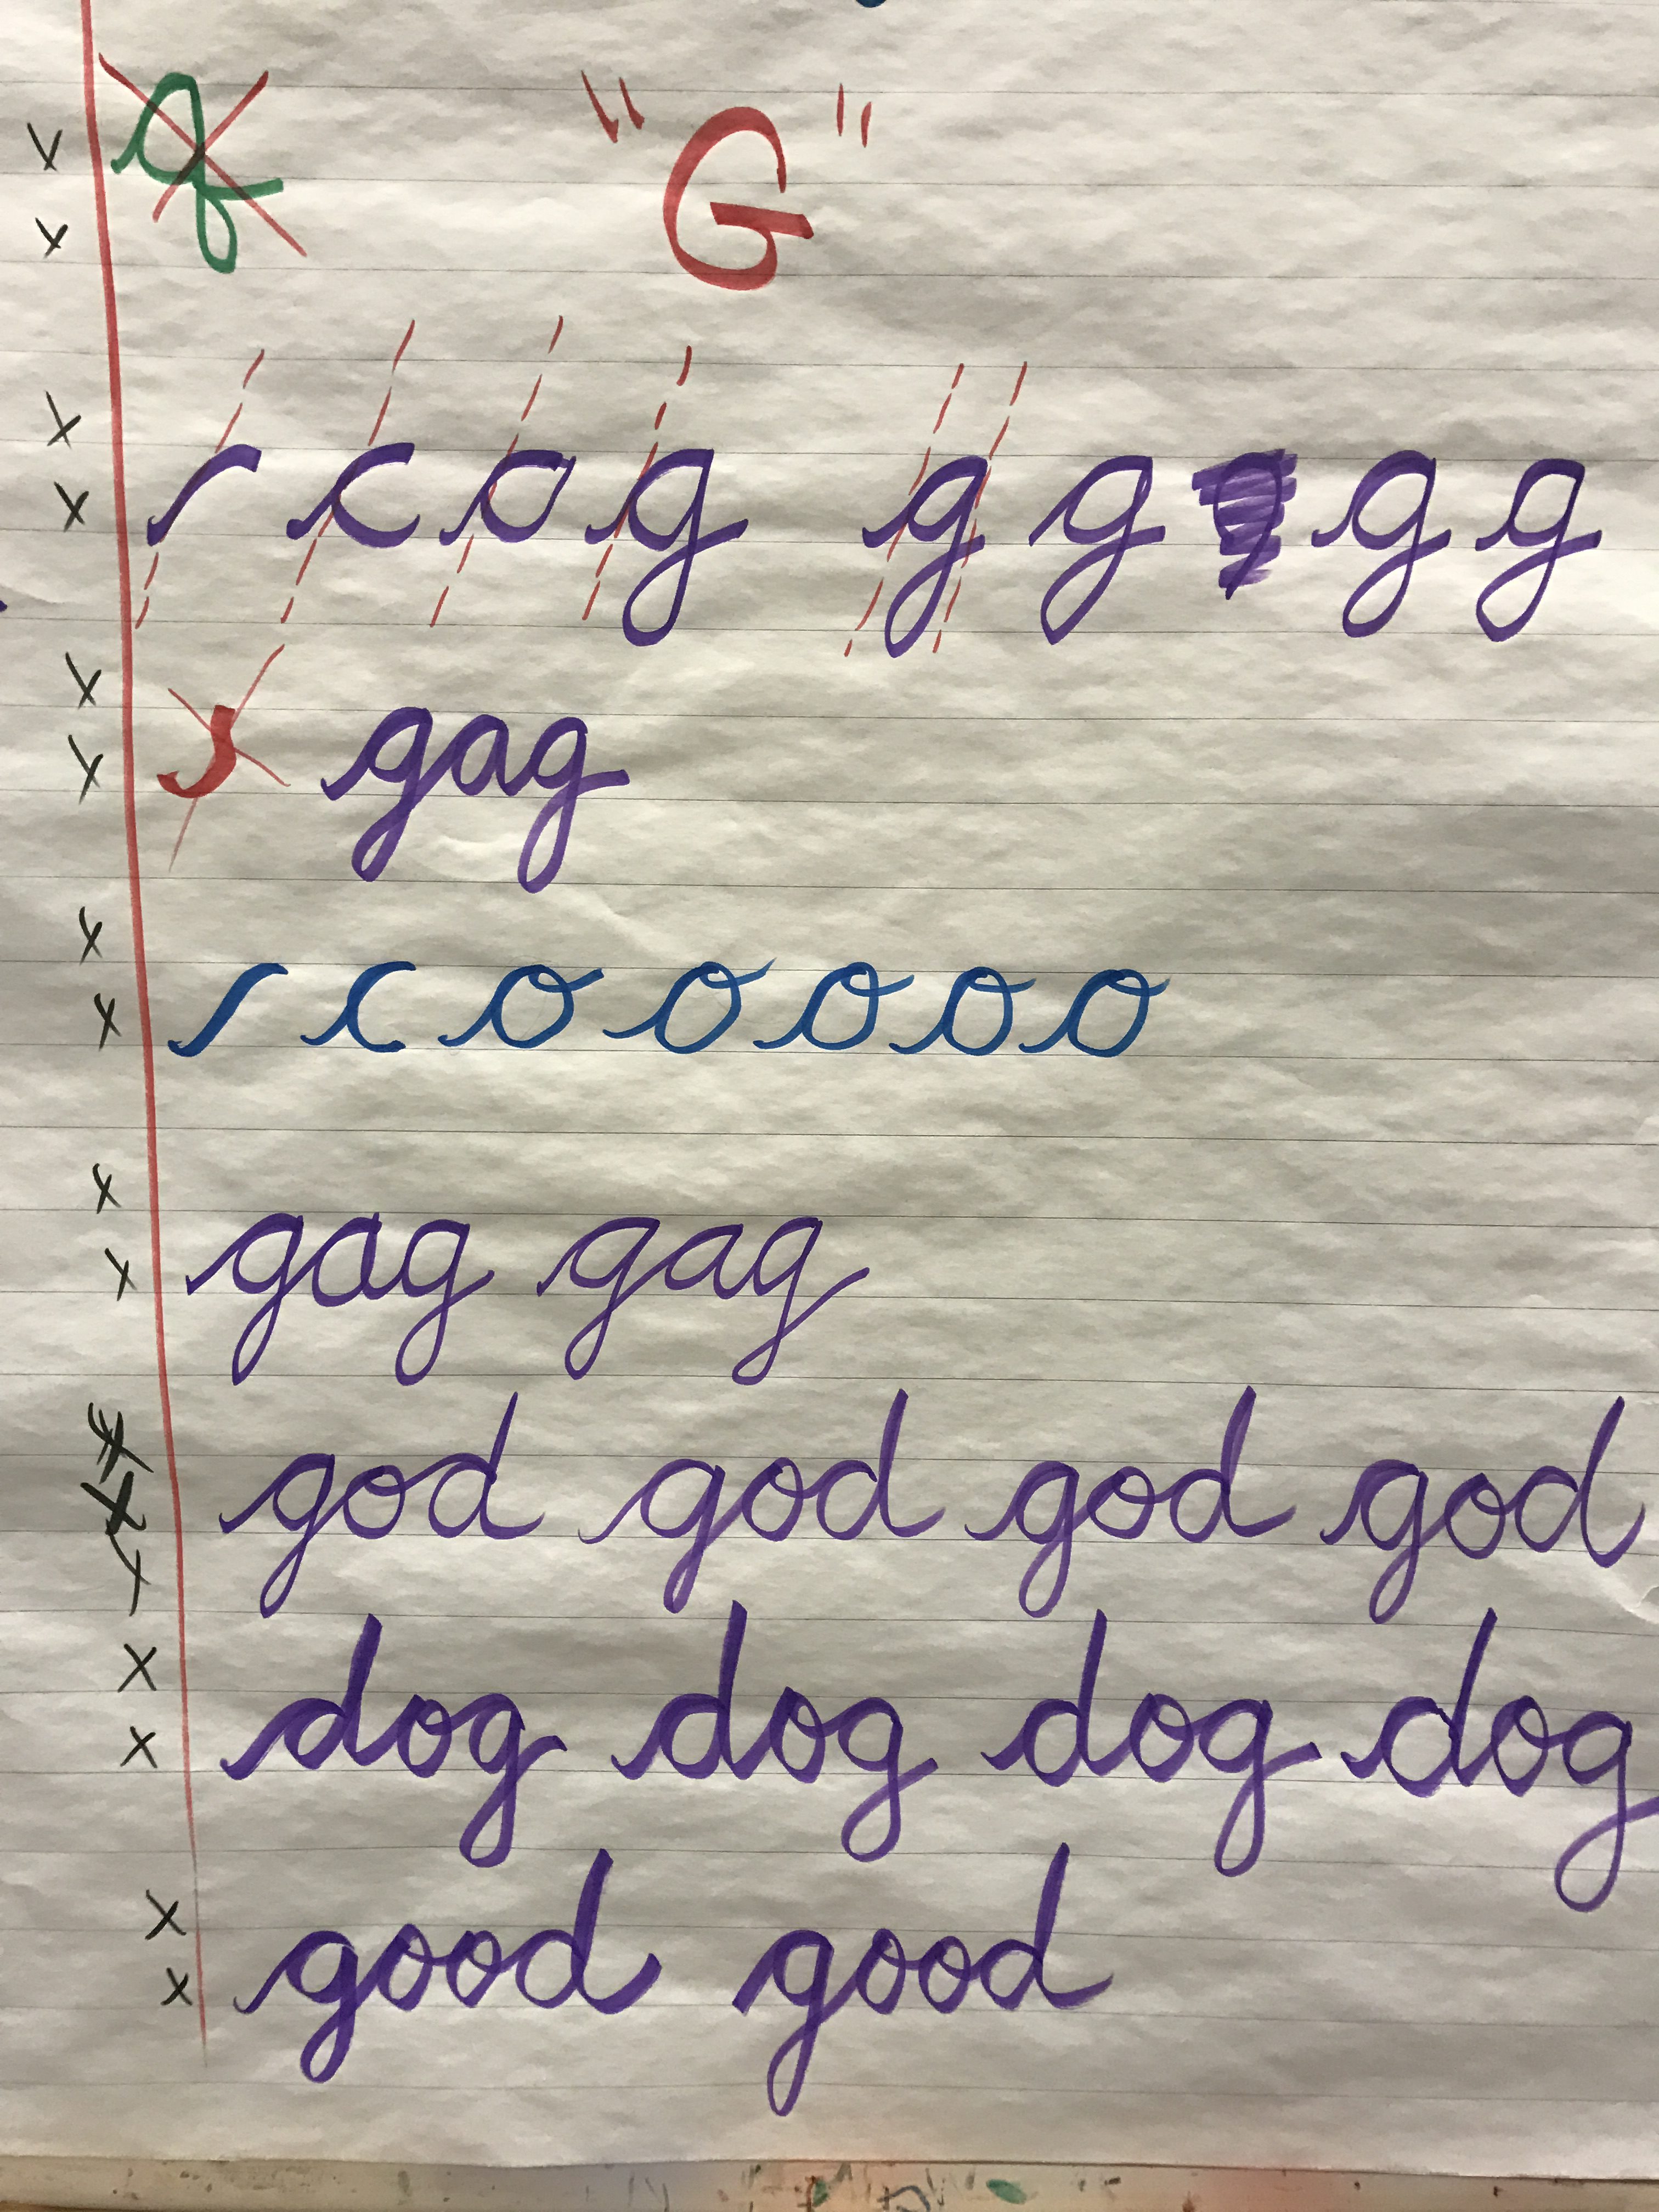 "G"
r c o g g g g g
gag
r c o o o o o
gag gag
god god god god
dog dog dog dog
good good